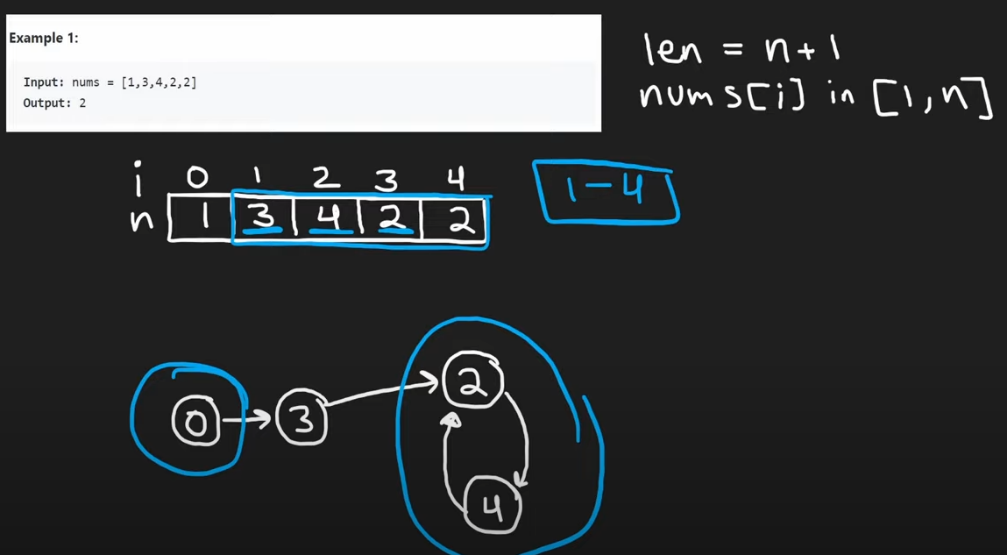 Example 1:
Input: nums = [1,3,4,2,2]
Output: 2
len = n+1
nums[i] in [1,n]
i 0 1 2 3 4
n 1 3 4 2 2
1-4
0 3 2
4